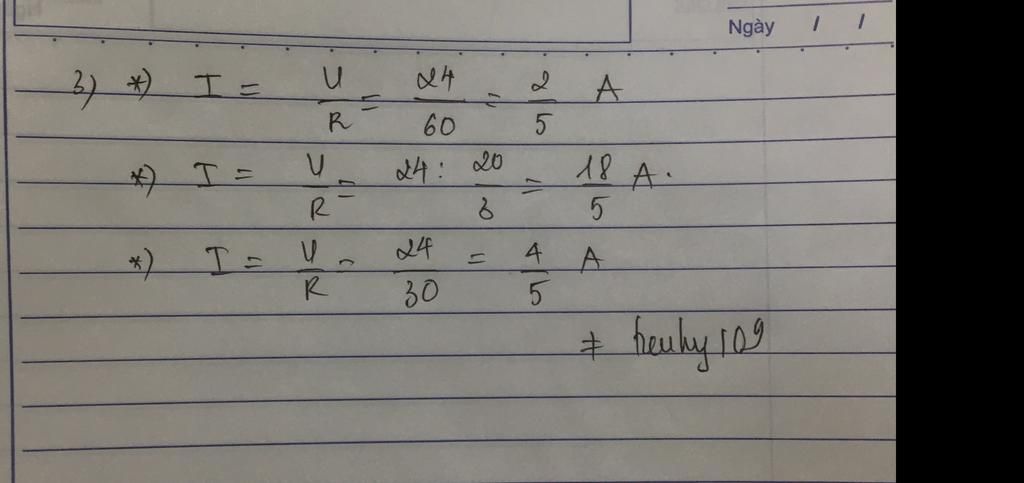 Ngày / /
3) *) I = U/R = 24/60 = 2/5 A
*) I = U/R = 24 : 20/3 = 18/5 A.
*) I = U/R = 24/30 = 4/5 A